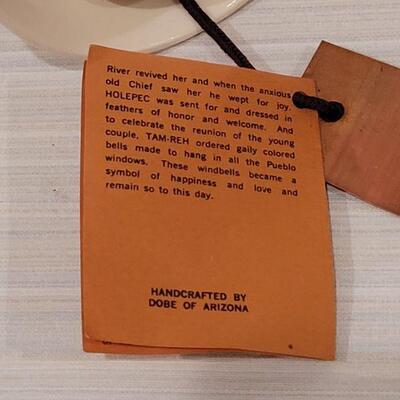 River revived her and when the anxious
old Chief saw her he wept for joy.
HOLEPEC was sent for and dressed in
feathers of honor and welcome. And
to celebrate the reunion of the young
couple, TAM-REH ordered gaily colored
bells made to hang in all the Pueblo
windows. These windbells became a
symbol of happiness and love and
remain so to this day.
HANDCRAFTED BY
DOBE OF ARIZONA